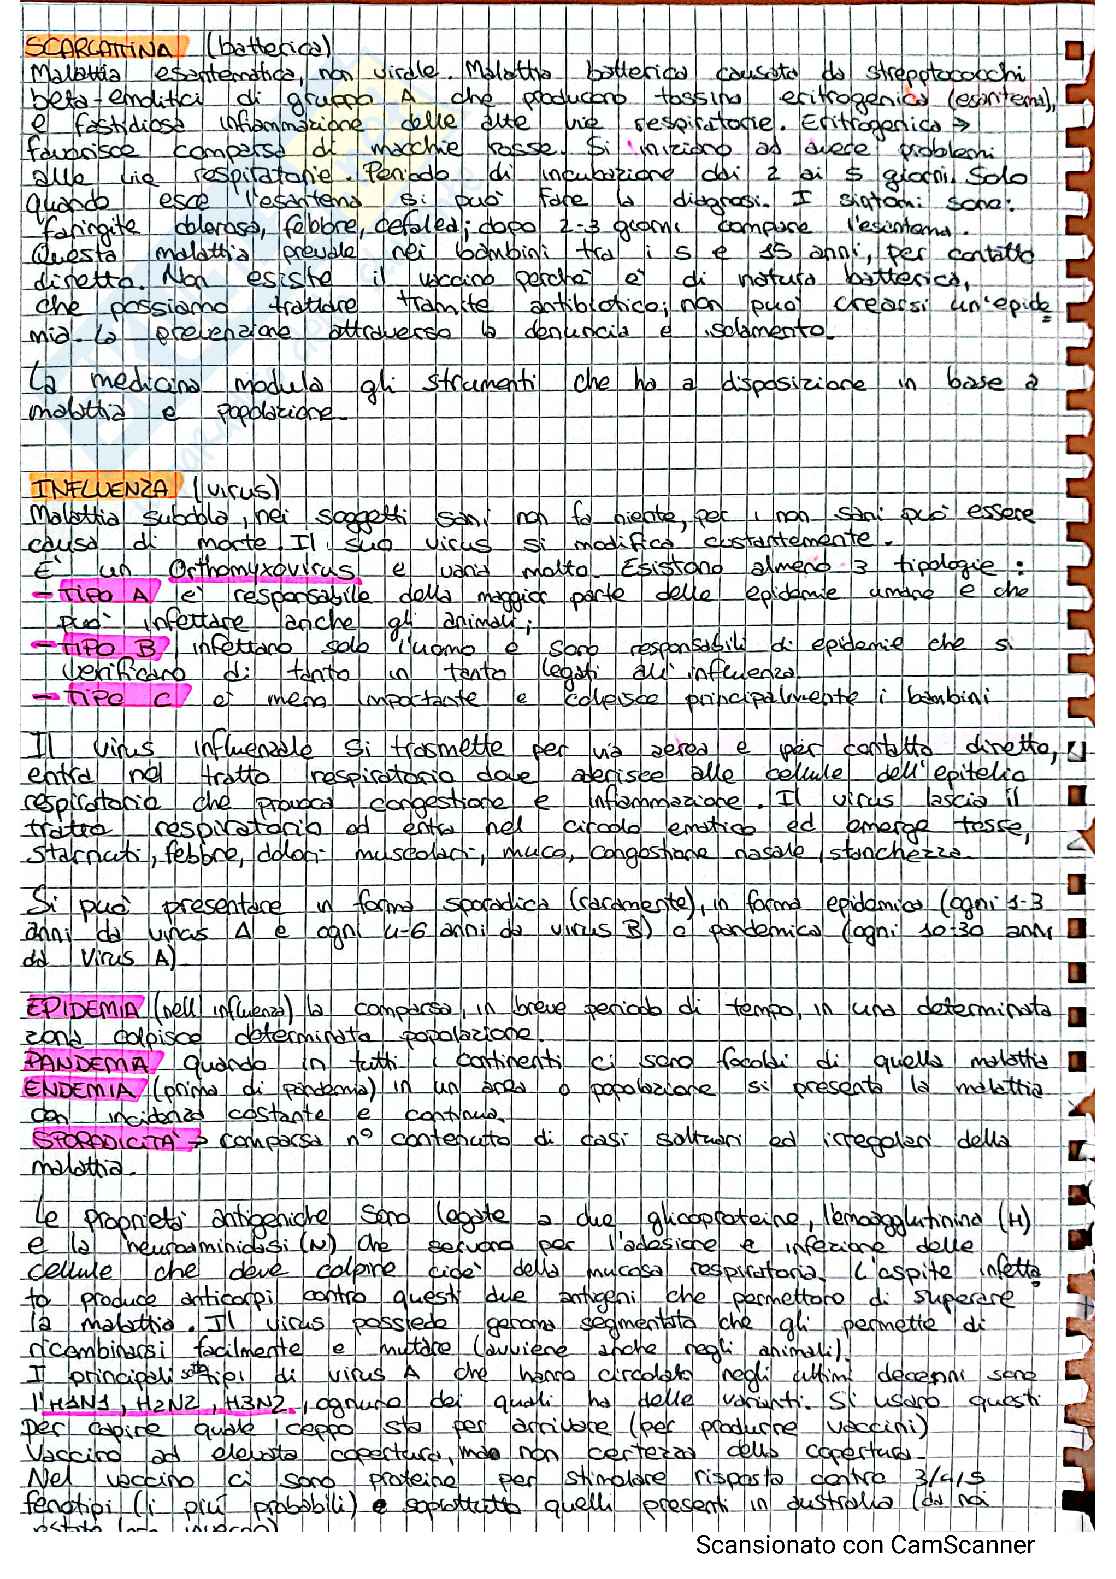 SCARLATTINA (batterica)
Malattia esantematica, non virale. Malattia batterica causata da strepptococchi
beta-emolitici di gruppo A che producono tossina eritrogenica (esantema),
e fastidiosa infiammazione delle alte vie respiratorie. Eritrogenica →
favorisce comparsa di macchie rosse. Si iniziano ad avere problemi
alle vie respiratorie. Periodo di incubazione dai 2 ai 5 giorni. Solo
quando esce l'esantema si può fare la diagnosi. I sintomi sono:
faringite dolorosa, febbre, cefalea; dopo 2-3 giorni compare l'esantema.
Questa malattia prevale nei bambini tra i 5 e 15 anni, per contatto
diretto. Non esiste il vaccino perché è di natura batterica,
che possiamo trattare tramite antibiotico; non può crearsi un'epide
mia. La prevenzione attraverso la denuncia e isolamento.
La medicina modula gli strumenti che ha a disposizione in base a
malattia e popolazione.
INFLUENZA (virus)
Malattia subdola, nei soggetti sani non fa niente, per i non sani può essere
causa di morte. Il suo virus si modifica costantemente.
È un Orthomyxovirus e varia molto. Esistono almeno 3 tipologie:
- TIPO A è responsabile della maggior parte delle epidemie umane e che
può infettare anche gli animali;
- TIPO B infettano solo l'uomo e sono responsabili di epidemie che si
verificano di tanto in tanto legati all'influenza
- TIPO C è meno importante e colpisce principalmente i bambini
Il virus influenzale si trasmette per via aerea e per contatto diretto,
entra nel tratto respiratorio dove aderisce alle cellule dell'epitelio
respiratorio che provoca congestione e infiammazione. Il virus lascia il
tratto respiratorio ed entra nel circolo ematico ed emerge tosse,
starnuti, febbre, dolori muscolari, muco, congestione nasale, stanchezza.
Si può presentare in forma sporadica (raramente), in forma epidemica (ogni 1-3
anni da virus A e ogni 4-6 anni da virus B) o pandemica (ogni 10-30 anni
da Virus A)
EPIDEMIA (nell'influenza) la comparsa, in breve periodo di tempo, in una determinata
zona colpisce determinata popolazione.
PANDEMIA quando in tutti i continenti ci sono focolai di quella malattia
ENDEMIA (prima di pandemia) in un area o popolazione si presenta la malattia
con incidenza costante e continua.
SPORADICITÀ → comparsa n° contenuto di casi saltuari ed irregolari della
malattia.
Le proprietà antigeniche sono legate a due glicoproteine, l'emoagglutinina (H)
e la neuroaminidasi (N) che servono per l'adesione e infezione delle
cellule che deve colpire cioè della mucosa respiratoria. L'ospite infetta
to produce anticorpi contro questi due antigeni che permettono di superare
la malattia. Il virus possiede genoma segmentato che gli permette di
ricombinarsi facilmente e mutare (avviene anche negli animali).
I principali sottotipi di virus A che hanno circolato negli ultimi decenni sono
l'H1N1, H2N2, H3N2, ognuno dei quali ha delle varianti. Si usano questi
per capire quale ceppo sta per arrivare (per produrre vaccini)
Vaccino ad elevata copertura, ma non certezza della copertura.
Nel vaccino ci sono proteine per stimolare risposta contro 3/4/5
fenotipi (i più probabili) e soprattutto quelli presenti in australia (da noi
estate loro inverno)
Scansionato con CamScanner